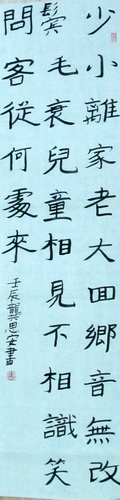 少小離家老大回鄉音無改
鬢毛衰兒童相見不相識笑
問客從何處來
壬辰龔思宏書